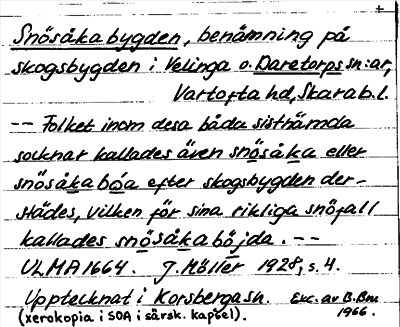 +
Snösåkabygden, benämning på
skogsbygden i Velinga o. Daretorps sn:ar,
Vartofta hd, Skarab.l.
-- Folket inom desa båda sistnämda
socknar kallades även snösåka eller
snösåkabóa efter skogsbygden der-
städes, vilken för sina rikliga snöfall
kallades snösåkaböjda. --
ULMA 1664. J. Möller 1928, s. 4.
Upptecknat i Korsberga sn. Exc. av B. Bm
(xerokopia i SOA i särsk. kapsel). 1966.